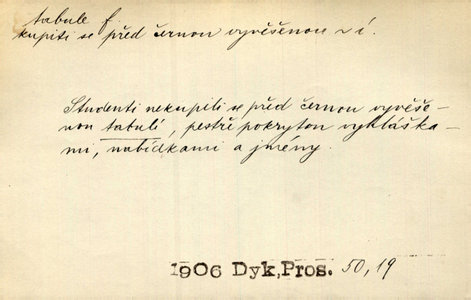 tabule f.
kupiti se před černou vyvěšenou ~ í.
Studenti nekupili se před černou vyvěše-
nou tabulí, pestře pokrytou vyhláška-
mi, nabídkami a jmény.
1906 Dyk, Pros. 50, 19